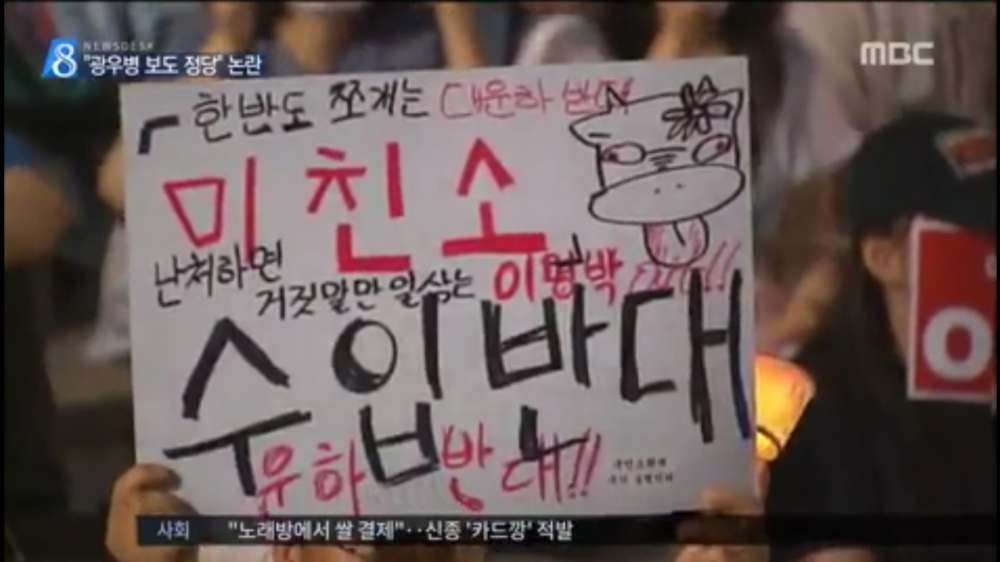 NEWSDESK
8 "광우병 보도 정당" 논란
MBC
한반도 쪼개는 대운하 반대
미친소
난처하면
거짓말만 일삼는 이명박
수입반대
유하반대!!
사회 "노래방에서 쌀 결제"‥신종 '카드깡' 적발